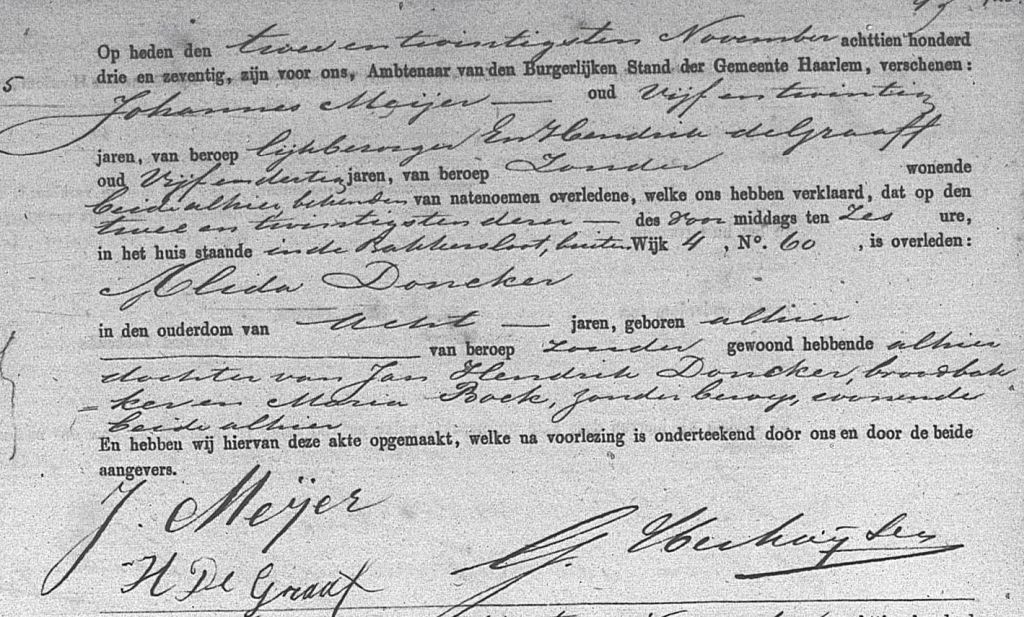 Op heden den twee en twintigsten November achttien honderd
drie en zeventig, zijn voor ons, Ambtenaar van den Burgerlijken Stand der Gemeente Haarlem, verschenen:
5
Johannes Meijer — oud Vijf en twintig
jaren, van beroep lijkbezorger En Hendrik de Graaff
oud Vijf en dertig jaren, van beroep Zonder wonende
beide alhier, bekenden van natenoemen overledene, welke ons hebben verklaard, dat op den
twee en twintigsten dezer — des voor middags ten Zes ure,
in het huis staande in de Bakkersloot, buiten Wijk 4, No. 60, is overleden:
Alida Doncker
in den ouderdom van Acht — jaren, geboren alhier
van beroep zonder gewoond hebbende alhier
dochter van Jan Hendrik Doncker, broodbak-
ker en Maria Boek, zonder beroep, wonende
beide alhier
En hebben wij hiervan deze akte opgemaakt, welke na voorlezing is onderteekend door ons en door de beide
aangevers.
J. Meijer
H De Graaf